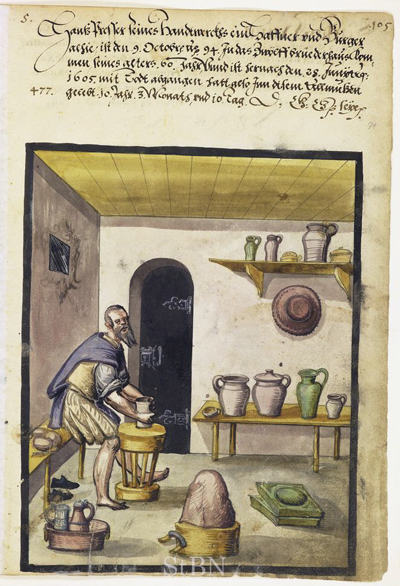 5. 105
Hanns Presser seines Handtwerchs ein Haffner und Burger
alhie, ist den 9. Octobris 94. In das Zwelff brüederhaus kom
men seines alters 60. Jahr und ist hernach den 28. January
1605. mit Todt abgangen hatt also Inn disem
477. gelebt 10. Jahr. 3 Monats und 10 tag.
StBN